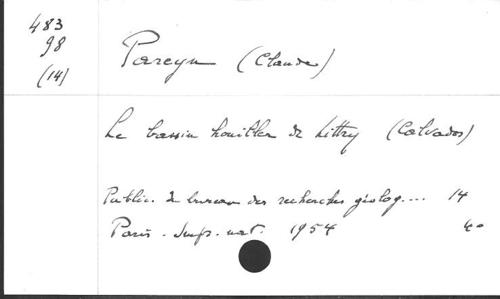 483
98
(14)
Pareyn (Claude)
Le bassin houiller de Littry (Calvados)
Public. du bureau des recherches géolog.... 14
Paris. Impr. nat. 1954 4°